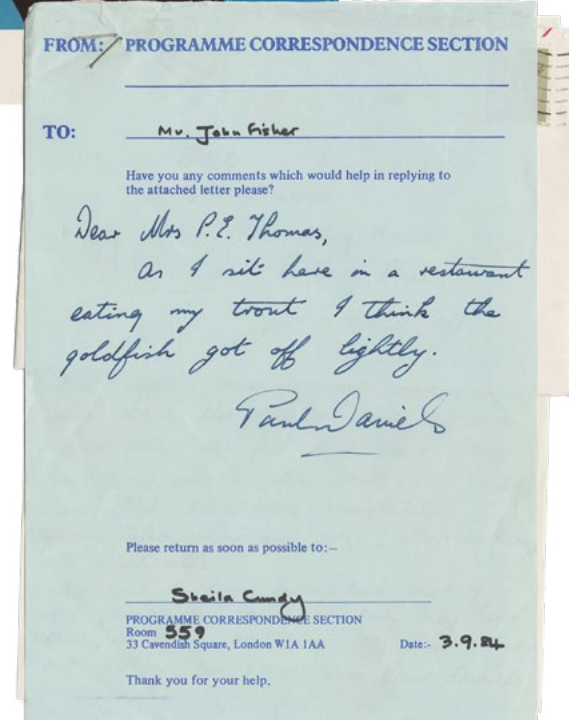 FROM: PROGRAMME CORRESPONDENCE SECTION
TO: Mr. John Fisher
Have you any comments which would help in replying to
the attached letter please?
Dear Mrs P.E. Thomas,
As I sit here in a restaurant
eating my trout I think the
goldfish got off lightly.
Paul Daniels
Please return as soon as possible to:—
Sheila Cundy
PROGRAMME CORRESPONDENCE SECTION
Room 559
33 Cavendish Square, London W1A 1AA Date:- 3.9.84
Thank you for your help.